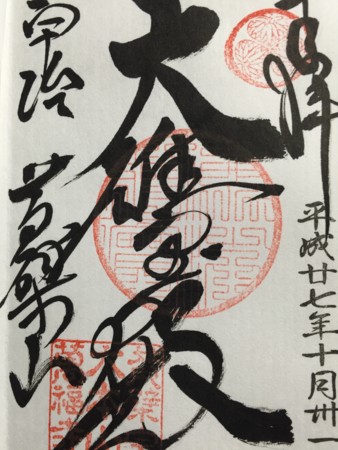 奉拝
平成廿七年十月卅一
大雄宝殿
宇治 黄檗山
萬福